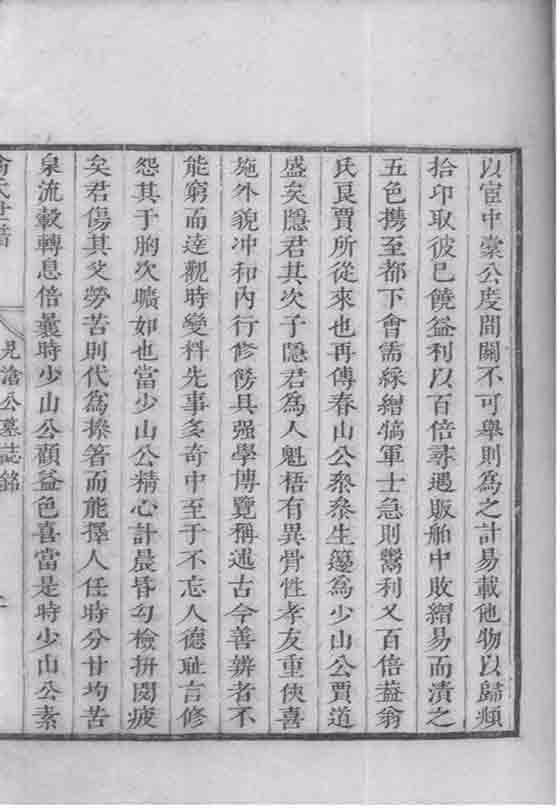 以宦中橐公度間關不可舉則爲之計易載他物以歸頻
拾卬取彼已饒益利以百倍尋遇販舶中敗繒易而漬之
五色攜至都下會需綵繒犒軍士急則鬻利又百倍葢翁
氏良賈所從來也再傳春山公參參生籩爲少山公賈道
盛矣隱君其次子隱君爲人魁梧有異骨性孝友重俠喜
施外貌冲和內行修飭具强學博覽稱述古今善辨者不
能窮而達觀時變料先事多奇中至于不忘人德耻言修
怨其于胸次曠如也當少山公精心計晨昏勾檢拼閱疲
矣君傷其父勞苦則代爲操箸而能擇人任時分甘均苦
泉流轂轉息倍曩時少山公顏益色喜當是時少山公素
翁氏世譜
見滄公墓誌銘